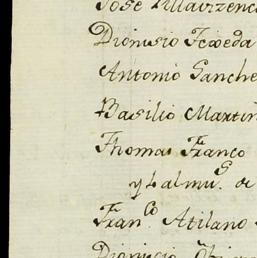 José Villavizenc
Dionisio Texeda
Antonio Sanche
Basilio Martin
Thomas Franco
y Lalmu.s de
Fran.co Atilano
Dionicio